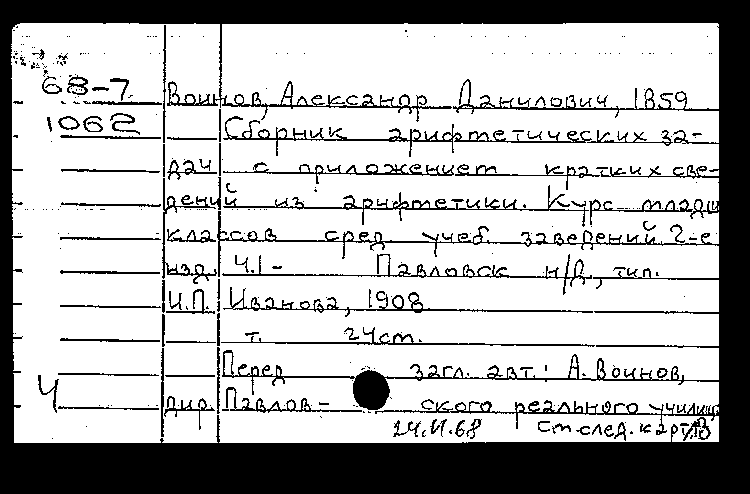 68-7 Воинов, Александр Данилович, 1859
1062 Сборник арифметических за-
дач с приложением кратких све-
дений из арифметики. Курс младш
классов сред. учеб. заведений. 2-е
изд. Ч.1- Павловск н/Д., тип.
И.П. Иванова, 1908
т. 24см.
Перед загл. авт.: А. Воинов,
Ч дир. Павлов- ского реального училищ
24.VI.68 См.след.карт.